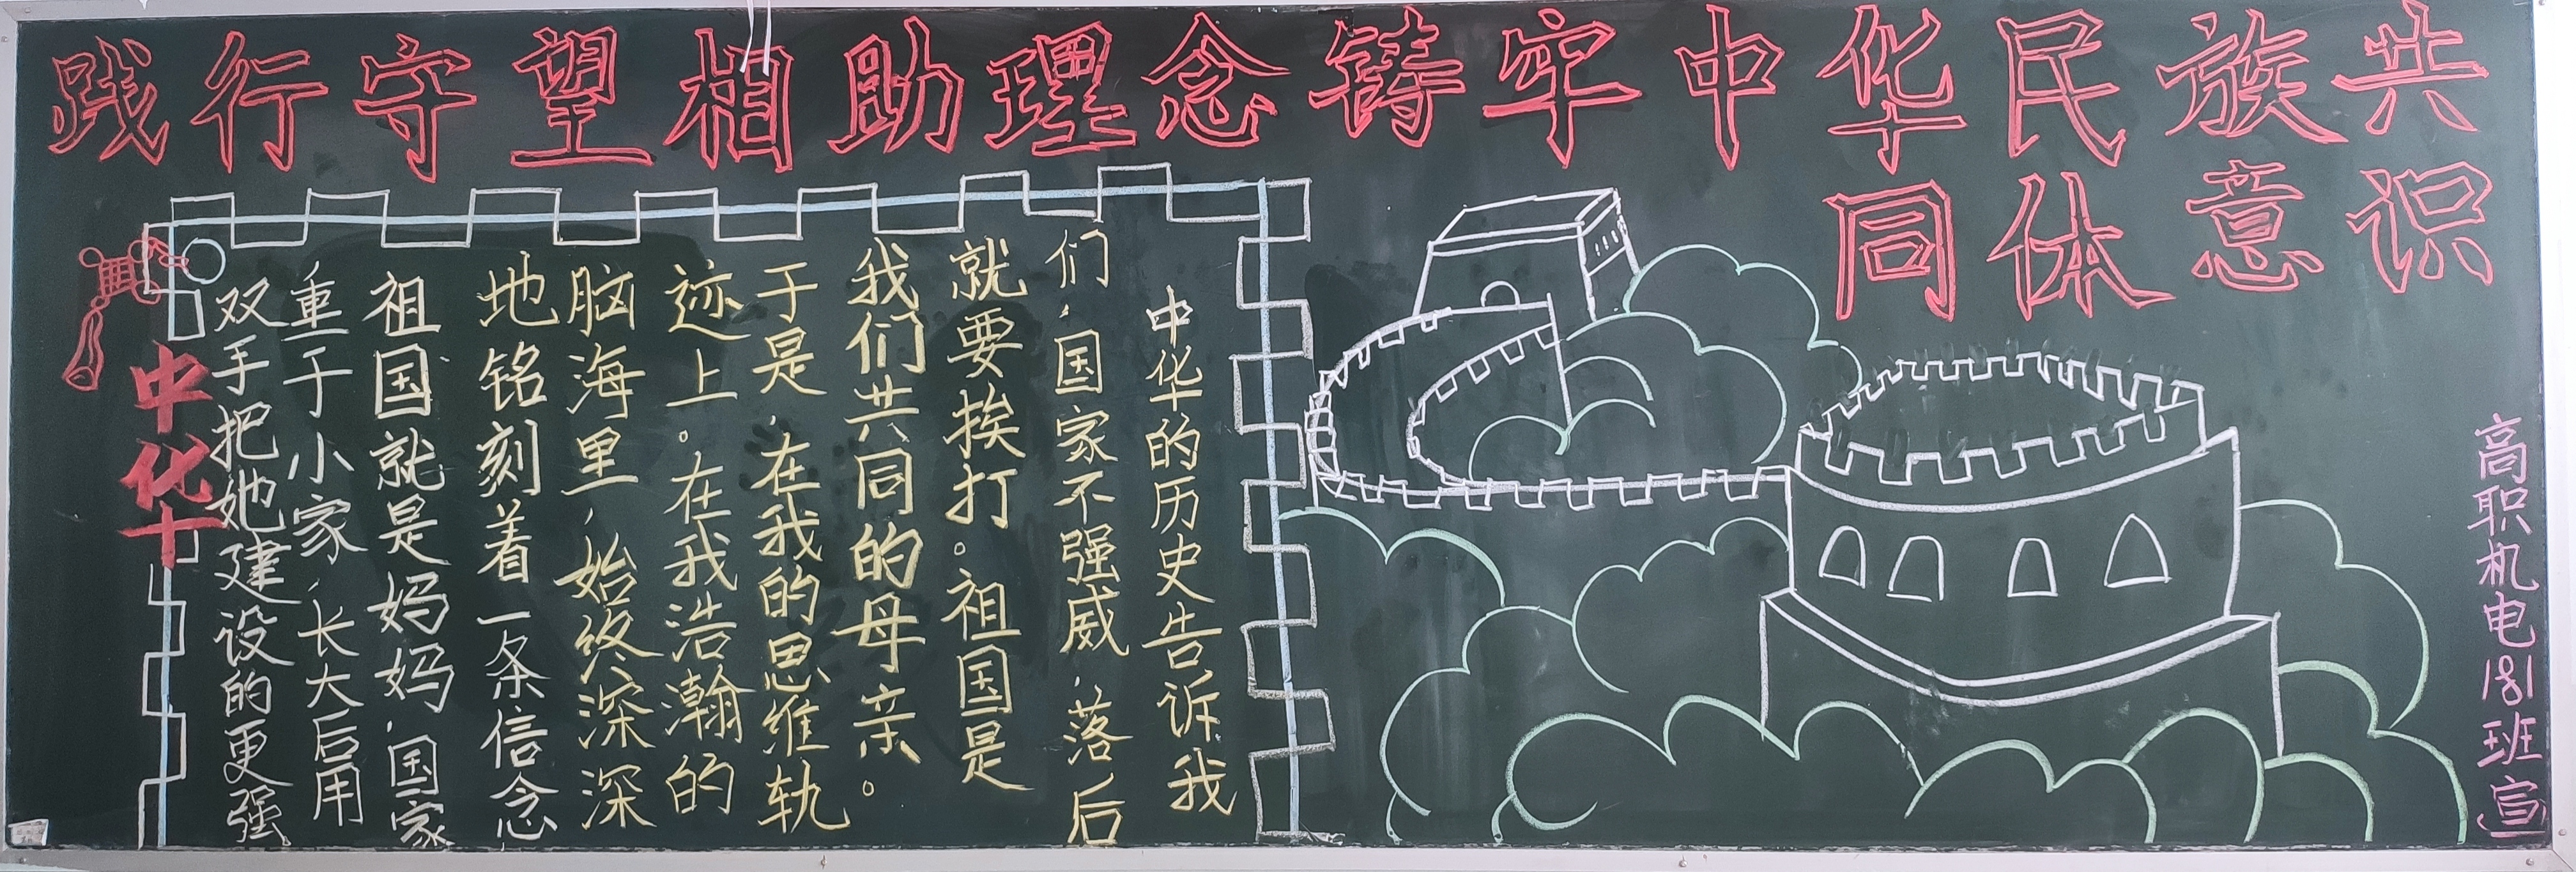 践行守望相助理念铸牢中华民族共
同体意识
中华的历史告诉我
们,国家不强威,落后
就要挨打。祖国是
我们共同的母亲。
于是,在我的思维轨
迹上。在我浩瀚的
脑海里,始终深深
地铭刻着一条信念
祖国就是妈妈,国家
重于小家,长大后用
双手把她建设的更强
中华
高职机电181班宣